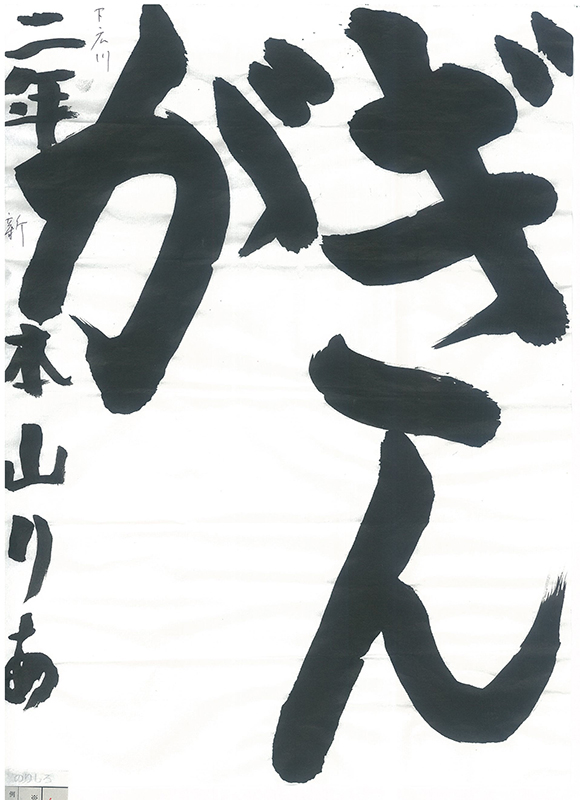 ぎん
が
下広川
二年 本山りあ
新
のりしろ